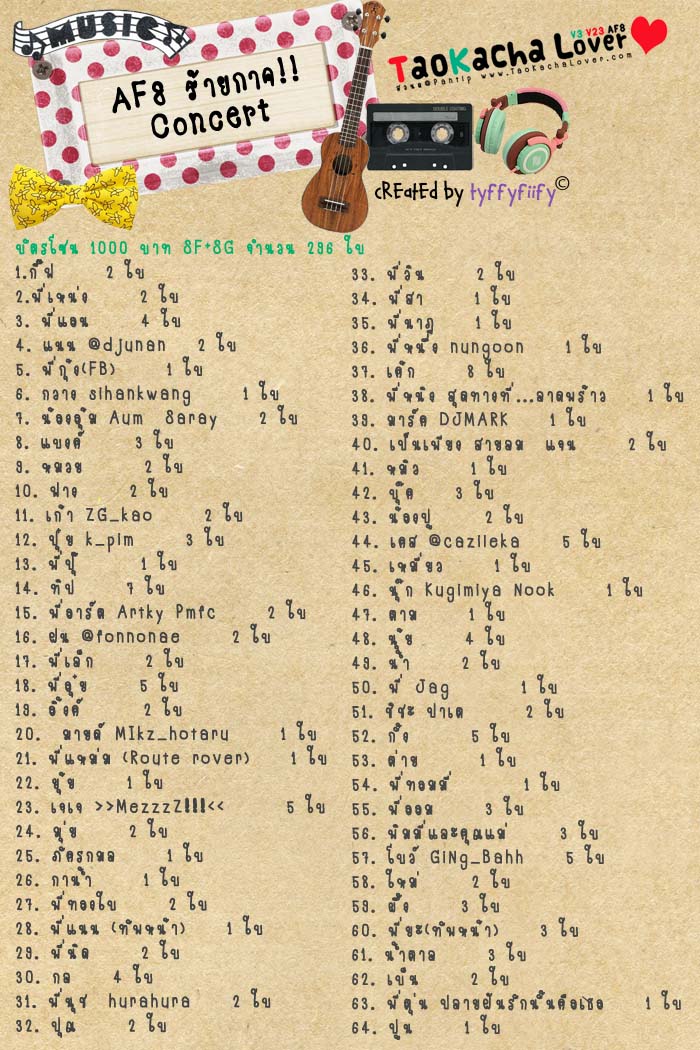 MUSIC
AF8 ร้ายกาจ!!
Concert
V3 V23 AF8
TaoKacha Lover
ห้วงรัก@Pantip www.TaoKachaLover.com
DOUBLE COATING
cREatEd by tyffyfiify©
บัตรโซน 1000 บาท 8F+8G จำนวน 296 ใบ
1.กิ๊ฟ 2 ใบ
2.พี่เหน่ง 2 ใบ
3. พี่แอน 4 ใบ
4. แนน @djunan 2 ใบ
5. พี่กุ้ง(FB) 1 ใบ
6. กวาง sihankwang 1 ใบ
7. น้องอุ้ม Aum Saray 2 ใบ
8. แบงค์ 3 ใบ
9. หมวย 2 ใบ
10. ฟาง 2 ใบ
11. เก๋า ZG_kao 2 ใบ
12. ปุ๋ย k_pim 3 ใบ
13. พี่ปู 1 ใบ
14. ทิป 7 ใบ
15. พี่อาร์ต Artky Pmfc 2 ใบ
16. ฝน @fonnonae 2 ใบ
17. พี่เล็ก 2 ใบ
18. พี่อุ๋ย 5 ใบ
19. อิ้งค์ 2 ใบ
20. มายด์ MIkz_hotaru 1 ใบ
21. พี่แหม่ม (Route rover) 1 ใบ
22. ยุ้ย 1 ใบ
23. เจเจ >>MezzzZ!!!<< 5 ใบ
24. มุ่ย 2 ใบ
25. ภัครกมล 1 ใบ
26. กาน้ำ 1 ใบ
27. พี่ทองใบ 2 ใบ
28. พี่แนน (ทัพหน้า) 1 ใบ
29. พี่นิด 2 ใบ
30. กล 4 ใบ
31. พี่นุช hurahura 2 ใบ
32. ปุณ 2 ใบ
33. พี่วิน 2 ใบ
34. พี่สา 1 ใบ
35. พี่นาฎ 1 ใบ
36. พี่หนึ่ง nungoon 1 ใบ
37. เค้ก 8 ใบ
38. พี่หนิง สุดทางที่...ลาดพร้าว 1 ใบ
39. มาร์ค DJMARK 1 ใบ
40. เป็นเพียง สายลม แจน 2 ใบ
41. หมิว 1 ใบ
42. บุ๊ค 3 ใบ
43. น้องปู 2 ใบ
44. เคส @cazileka 5 ใบ
45. เหมียว 1 ใบ
46. นุ๊ก Kugimiya Nook 1 ใบ
47. ตาม 1 ใบ
48. นุ้ย 4 ใบ
49. น้ำ 2 ใบ
50. พี่ Jag 1 ใบ
51. ชิชะ ปาเต 2 ใบ
52. กิ๊ง 5 ใบ
53. ต่าย 1 ใบ
54. พี่ทอมมี่ 1 ใบ
55. พี่ออม 3 ใบ
56. พิมมี่และคุณแม่ 3 ใบ
57. โบว์ GiNg_Bahh 5 ใบ
58. ใหม่ 2 ใบ
59. ผึ้ง 3 ใบ
60. พี่ยะ(ทัพหน้า) 3 ใบ
61. น้ำตาล 3 ใบ
62. เบ็น 2 ใบ
63. พี่ตุ่น ปลายฝันรักนั้นคือเธอ 1 ใบ
64. ปูน 1 ใบ